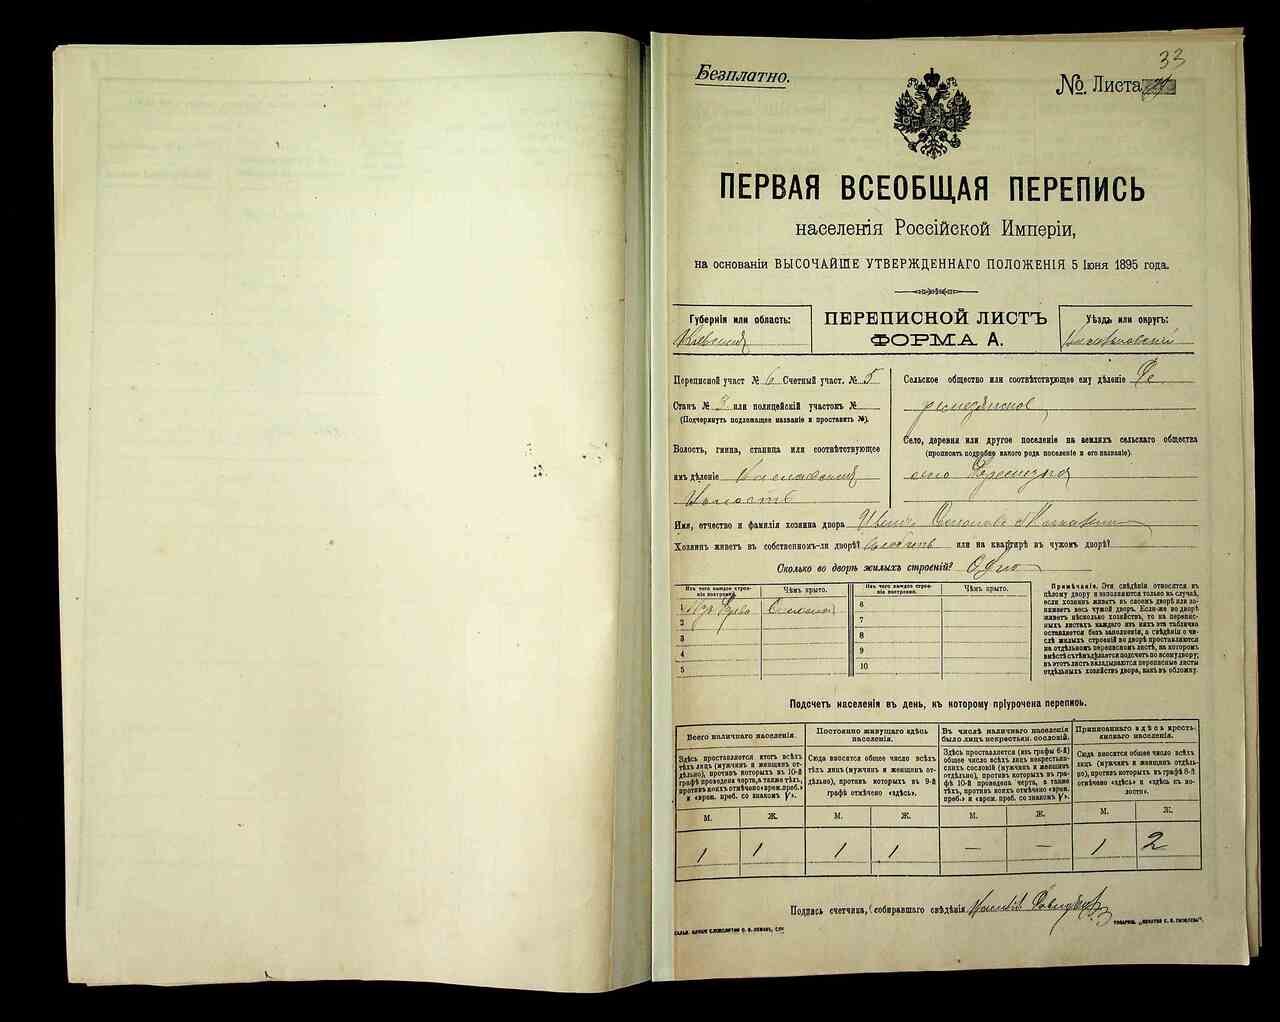 33
Безплатно.
№ Листа
ПЕРВАЯ ВСЕОБЩАЯ ПЕРЕПИСЬ
населенія Россійской Имперіи,
на основаніи ВЫСОЧАЙШЕ УТВЕРЖДЕННАГО ПОЛОЖЕНІЯ 5 Іюня 1895 года.
Губернія или область:
Кіевская
ПЕРЕПИСНОЙ ЛИСТЪ
ФОРМА А.
Уѣздъ или округъ:
Переписной участ № 6 Счетный участ. № 5
Станъ № 3 или полицейскій участокъ №
(Подчеркнуть подлежащее названіе и проставить №).
Волость, гмина, станица или соотвѣтствующее
имъ дѣленіе
Волость
Сельское общество или соотвѣтствующее ему дѣленіе
Село, деревня или другое поселеніе на земляхъ сельскаго общества
(прописать подробно какого рода поселеніе и его названіе).
село
Имя, отчество и фамилія хозяина двора
Хозяинъ живетъ въ собственномъ-ли дворѣ? или на квартирѣ въ чужомъ дворѣ?
Сколько во дворѣ жилыхъ строеній? Одно
Изъ чего каждое строеніе построено. Чѣмъ крыто.
1 Изъ дерева Соломой
2
3
4
5
Изъ чего каждое строеніе построено. Чѣмъ крыто.
6
7
8
9
10
Примѣчаніе. Эти свѣдѣнія относятся къ
цѣлому двору и заполняются только въ случаѣ,
если хозяинъ живетъ въ своемъ дворѣ или занимаетъ
весь чужой дворъ. Если-же во дворѣ
живетъ нѣсколько хозяйствъ, то на переписныхъ
листахъ каждаго изъ нихъ эта табличка
оставляется безъ заполненія, а свѣдѣнія о числѣ
жилыхъ строеній во дворѣ проставляются
на отдѣльномъ переписномъ листѣ, на которомъ
вмѣстѣ съ тѣмъ дѣлается подсчетъ по всему двору;
въ этотъ листъ вкладываются переписные листы
отдѣльныхъ хозяйствъ двора, какъ въ обложку.
Подсчетъ населенія въ день, къ которому пріурочена перепись.
Всего наличнаго населенія.
Здѣсь проставляется итогъ всѣхъ
тѣхъ лицъ (мужчинъ и женщинъ отдѣльно),
противъ которыхъ въ 10-й
графѣ проведена черта, а также тѣхъ,
противъ коихъ отмѣчено «врем. преб.»
и «врем. преб. со знакомъ V».
М. Ж.
1 1
Постоянно живущаго здѣсь
населенія.
Сюда вносится общее число всѣхъ
тѣхъ лицъ (мужчинъ и женщинъ отдѣльно),
противъ которыхъ въ 9-й
графѣ отмѣчено «здѣсь».
М. Ж.
1 1
Въ числѣ наличнаго населенія
было лицъ некрестьян. сословій.
Здѣсь проставляется (изъ графы 6-й)
общее число всѣхъ лицъ некрестьянскихъ
сословій (мужчинъ и женщинъ
отдѣльно), противъ которыхъ въ графѣ
10-й проведена черта, а также
тѣхъ, противъ коихъ отмѣчено «врем.
преб.» и «врем. преб. со знакомъ V».
М. Ж.
— —
Приписаннаго здѣсь крестьянскаго
населенія.
Сюда вносится общее число всѣхъ
лицъ (мужчинъ и женщинъ отдѣльно),
противъ которыхъ въ графѣ 8-й
отмѣчено «здѣсь» и «здѣсь къ волости».
М. Ж.
1 2
Подпись счетчика, собиравшаго свѣдѣнія